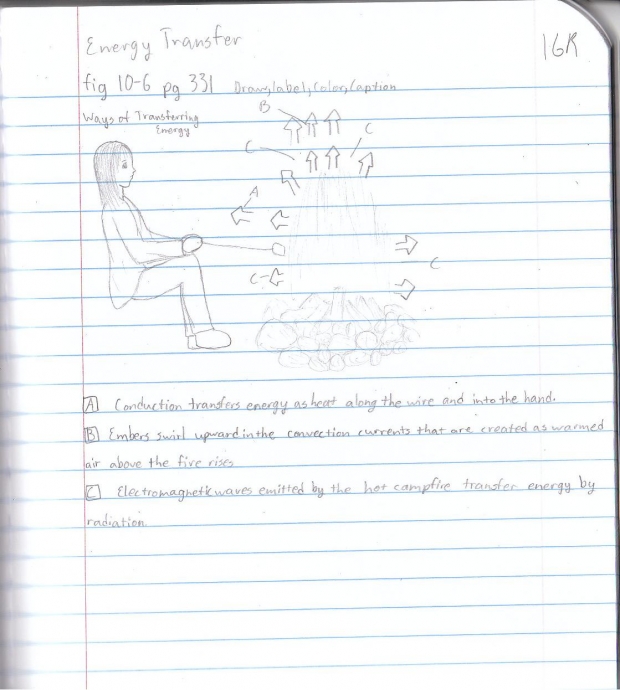 Energy Transfer
16R
fig 10-6 pg 331 Draw, label, color, caption
Ways of Transferring
Energy
B
C
C
A
C
C
A Conduction transfers energy as heat along the wire and into the hand.
B Embers swirl upward in the convection currents that are created as warmed
air above the fire rises
C Electromagnetic waves emitted by the hot campfire transfer energy by
radiation.